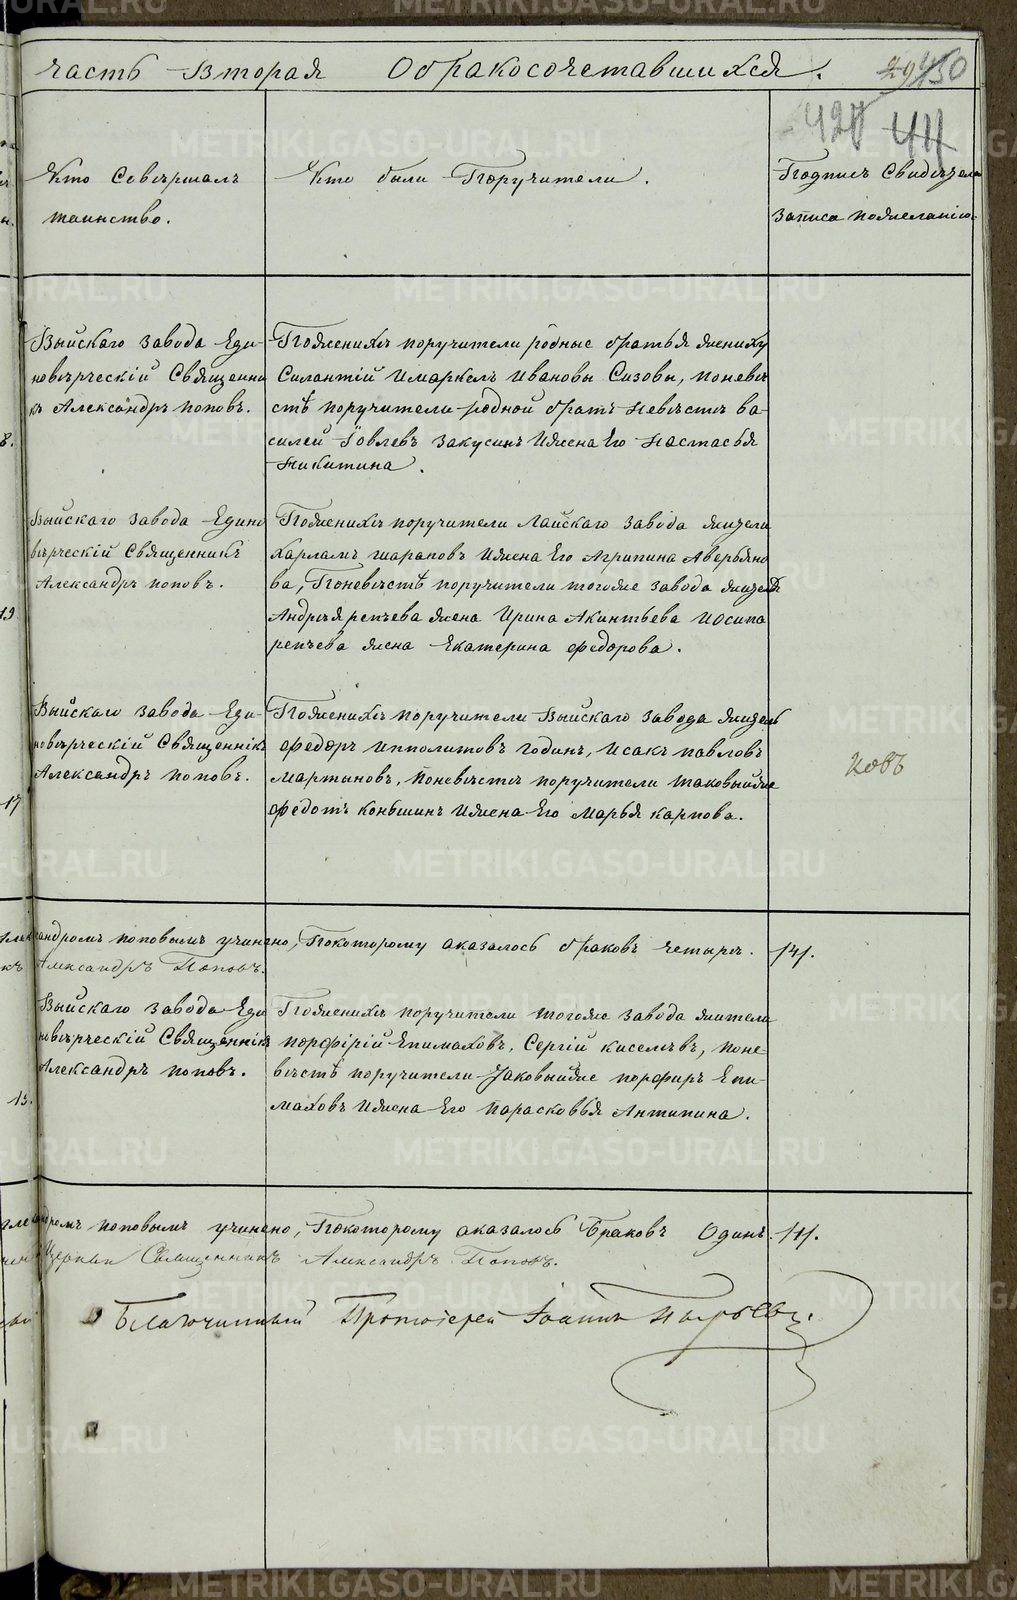 часть вторая Обракосочетавшихся.
Кто Совѣршалъ
таинство.
Кто были Поручители.
420 44
Подпись Свидѣтеле
записа пожеланію.
Выйскаго завода Еди-
новѣрческій Священни
къ Александръ поповъ.
Поженихѣ поручители родные братья жениху
Силантій Имаркелъ Ивановы Сизовы, поневѣ
стѣ поручители родной братъ невѣсте ва-
силей Iовлевъ Закусинъ Ижена Его Настасья
Никитина.
Выйскаго завода Едино
вѣрческій Священникъ
Александръ поповъ.
Поженихѣ поручители Лайскаго завода жители
Харламъ шараповъ Ижена Его Агрипина Аверьяно
ва, Поневѣстѣ поручители тогоже завода жители
Андрѣя репьева жена Ирина Акинтьева Иосипа
репьева жена Екатерина федорова.
Выйскаго завода Еди-
новѣрческій Священнікъ
Александръ поповъ.
Поженихѣ поручители Выйскаго завода жители
федоръ ипполитовъ годинъ, Исакъ павловъ
Мартыновъ, поневѣсте поручители таковыйже
федотъ коньшинъ Ижена Его Марья карпова.
ковъ
андромъ поповымъ учинено, Покоторому аказалось браковъ четыре. 141.
Александръ Поповъ.
Выйскаго завода Еди
новѣрческій Священнікъ
Александръ поповъ.
Поженихѣ поручители тогоже завода жители
порфірій Епимаховъ, Сергій киселевъ, поне-
вѣстѣ поручители Таковыйже порфиръ Епи-
маховъ Ижена Его параскoвья Антипина.
дромъ поповымъ учинено, Покоторому аказалось Браковъ Одинъ. 141.
Церкви Священникъ Александръ Поповъ.
Благочинный Протоіерей Іоаннъ